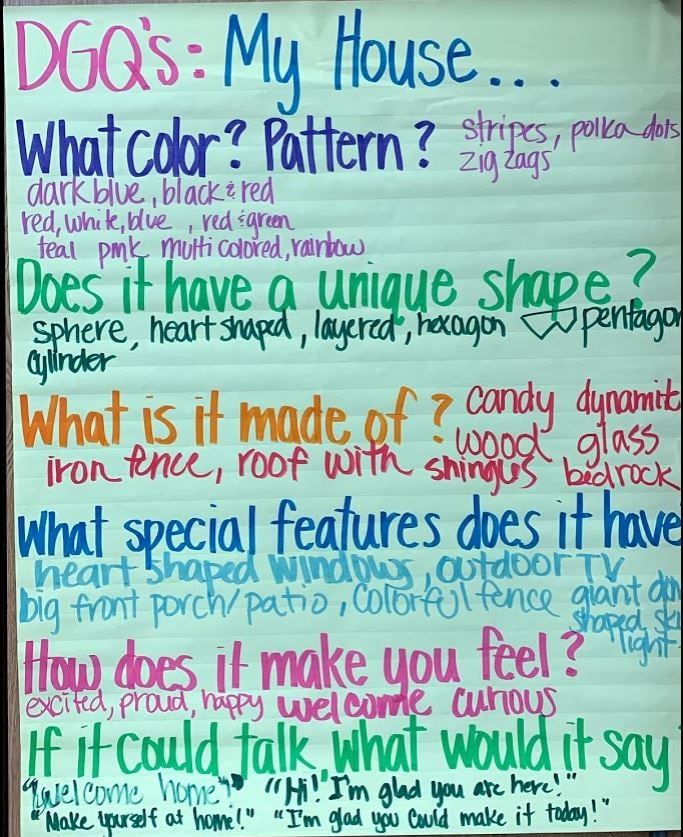 DGQ's: My House...
What color? Pattern? stripes, polka dots
zig zags
dark blue, black & red
red, white, blue , red & green
teal pink multi colored, rainbow
Does it have a unique shape?
sphere, heart shaped, layered, hexagon pentagon
cylinder
What is it made of? candy dynamite
wood glass
iron fence, roof with shingles bedrock
What special features does it have
heart shaped windows, outdoor TV
big front porch/patio, colorful fence giant
shaped
light
How does it make you feel?
excited, proud, happy welcome curious
If it could talk what would it say
"Welcome home!" "Hi! I'm glad you are here!"
"Make yourself at home!" "I'm glad you could make it today!"